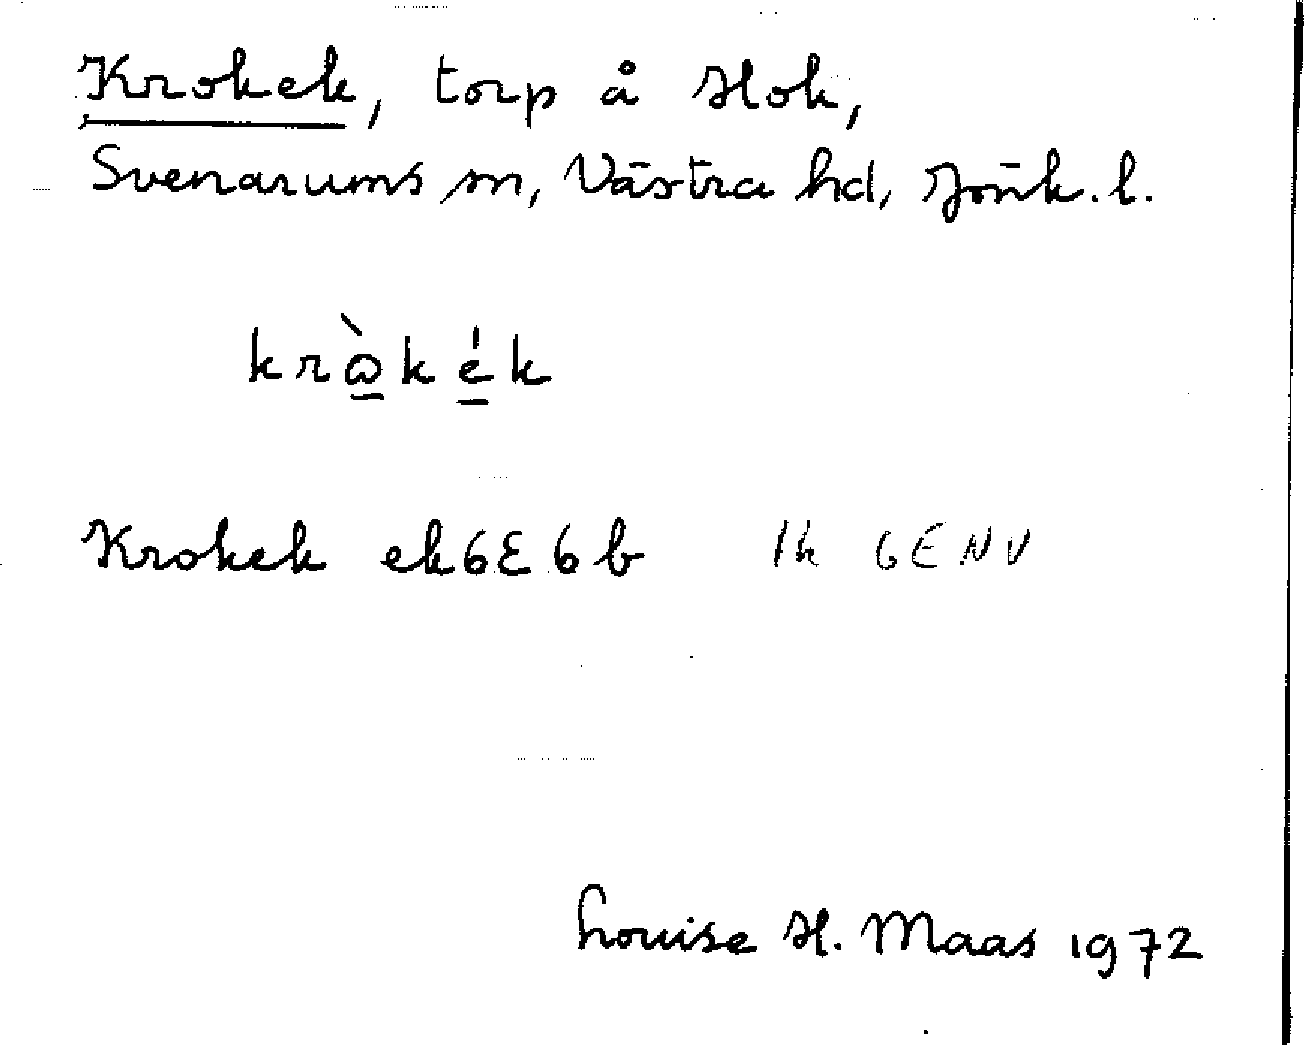 Krokek, torp å Hok,
Svenarums sn, Västra hd, Jönk. l.
kròkék
Krokek ek 6E6b lk 6ENV
Louise H. Maas 1972